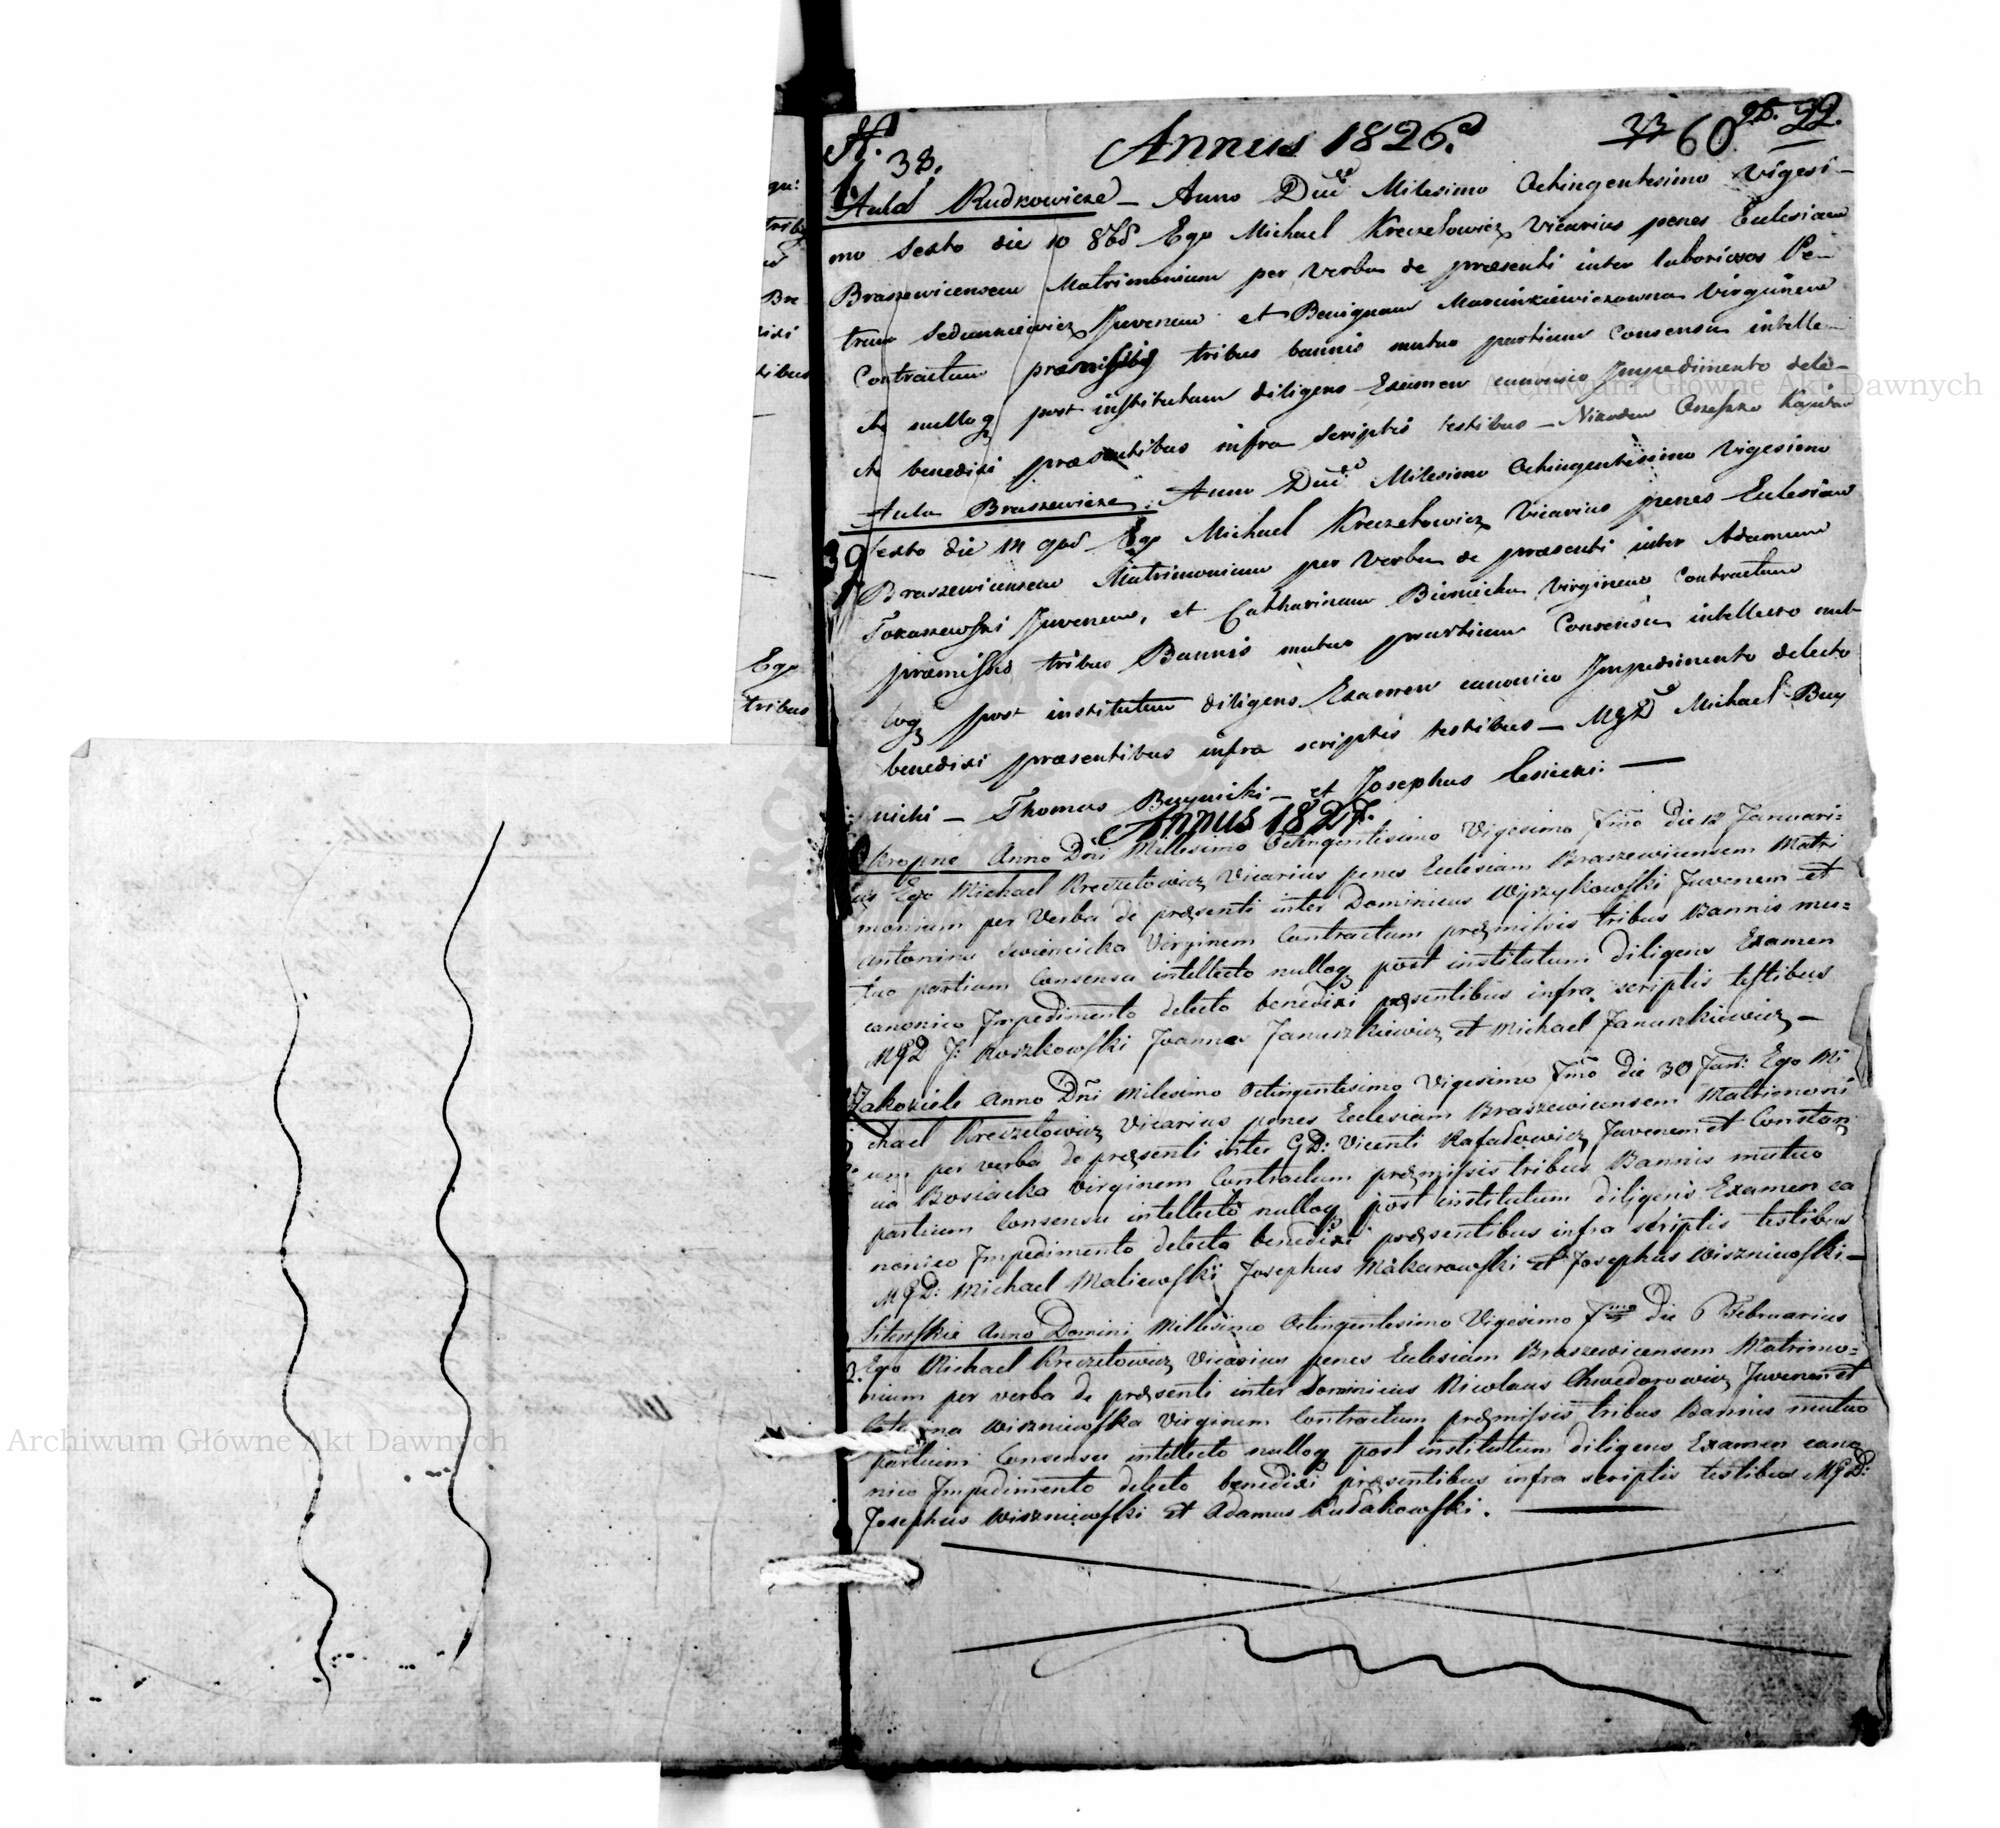 No.
Annus 1826.
33 60 28. 22.
38.
Aula Rudkowicze – Anno Dni Milesimo Octingentesimo Vigesi-
mo Sexto die 10 8bs Ego Michael Kreczetowicz Vicarius penes Eclesiam
Braszewicensem Matrimonium per Verba de præsenti inter laboriosos Pe-
trum Juvenem et Benignam Marcinkiewiczowna Virginem
Contractum præmissis tribus bannis mutuo partium Consensu intelle-
cto nulloq post institutum diligens Examen canonico Impedimento dete-
cto benedixi præsentibus infra scriptis testibus – Nikodem
Aula Braszewicze. Anno Dni Milesimo Octingentesimo Vigesimo
39 Sexto die 14 9bs Ego Michael Kreczetowicz Vicarius penes Eclesiam
Braszewicensem Matrimonium per Verba de præsenti inter Adamum
Tokaszewski Juvenem, et Catharinam Bieniecka Virginem Contractum
præmissis tribus Bannis mutuo partium Consensu intellecto nul-
loq post institutum diligens Examen canonico Impedimento detecto
benedixi præsentibus infra scriptis testibus – MGD Michael Buy
nicki – Thomas Buynicki – et Josephus Lesiecki. —
Annus 1827.
Kropne Anno Dni Millesimo Octingentesimo Vigesimo 7mo die 12 Januari=
us Ego Michael Kreczetowicz Vicarius penes Eclesiam Braszewicensem Matri
monium per Verba de presenti inter Dominicus Wyrzykowski Juvenem et
Antonina Swiencicka Virginem Contractum premissis tribus Bannis mu=
tuo partium Consensu intellecto nulloq post institutum diligens Examen
canonico Impedimento detecto benedixi presentibus infra scriptis testibus
MGD J: Roszkowski Joannes Januszkiewicz et Michael Januszkiewicz –
Zakoziele Anno Dni Milesimo Octingentesimo Vigesimo 7mo die 30 Jan: Ego Mi
chael Kreczetowicz Vicarius penes Eclesiam Braszewicensem Matrimoni
um per verba de presenti inter GD: Vicenti Rafadowicz Juvenem et Constan
cia Kosiacka Virginem Contractum premissis tribus Bannis mutuo
partium Consensu intellecto nulloq post institutum diligens Examen ca
nonico Impedimento detecto benedixi presentibus infra scriptis testibus
MGD: Michael Maliewski Josephus Makarowski et Josephus Wiszniewski –
Litewskie Anno Domini Millesimo Octingentesimo Vigesimo 7mo die 6 Februarius
2. Ego Michael Kreczetowicz Vicarius penes Eclesiam Braszewicensem Matrimo=
nium per verba de presenti inter Dominicus Nicolaus Chwedorowicz Juvenem et
Wiszniewska Virginem Contractum premissis tribus Bannis mutuo
partium Consensu intellecto nulloq post institutum diligens Examen cano
nico Impedimento detecto benedixi presentibus infra scriptis testibus MGD:
Josephus Wiszniewski et Adamus Rudakowski. —
tribus
Bre
tibus
Ego
tribus
Archiwum Główne Akt Dawnych
Archiwum Główne Akt Dawnych